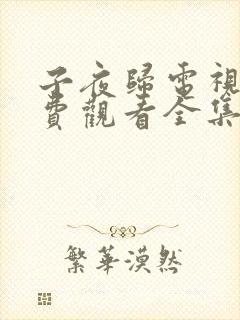 子夜歸電視
費觀看全集
繁華漠然